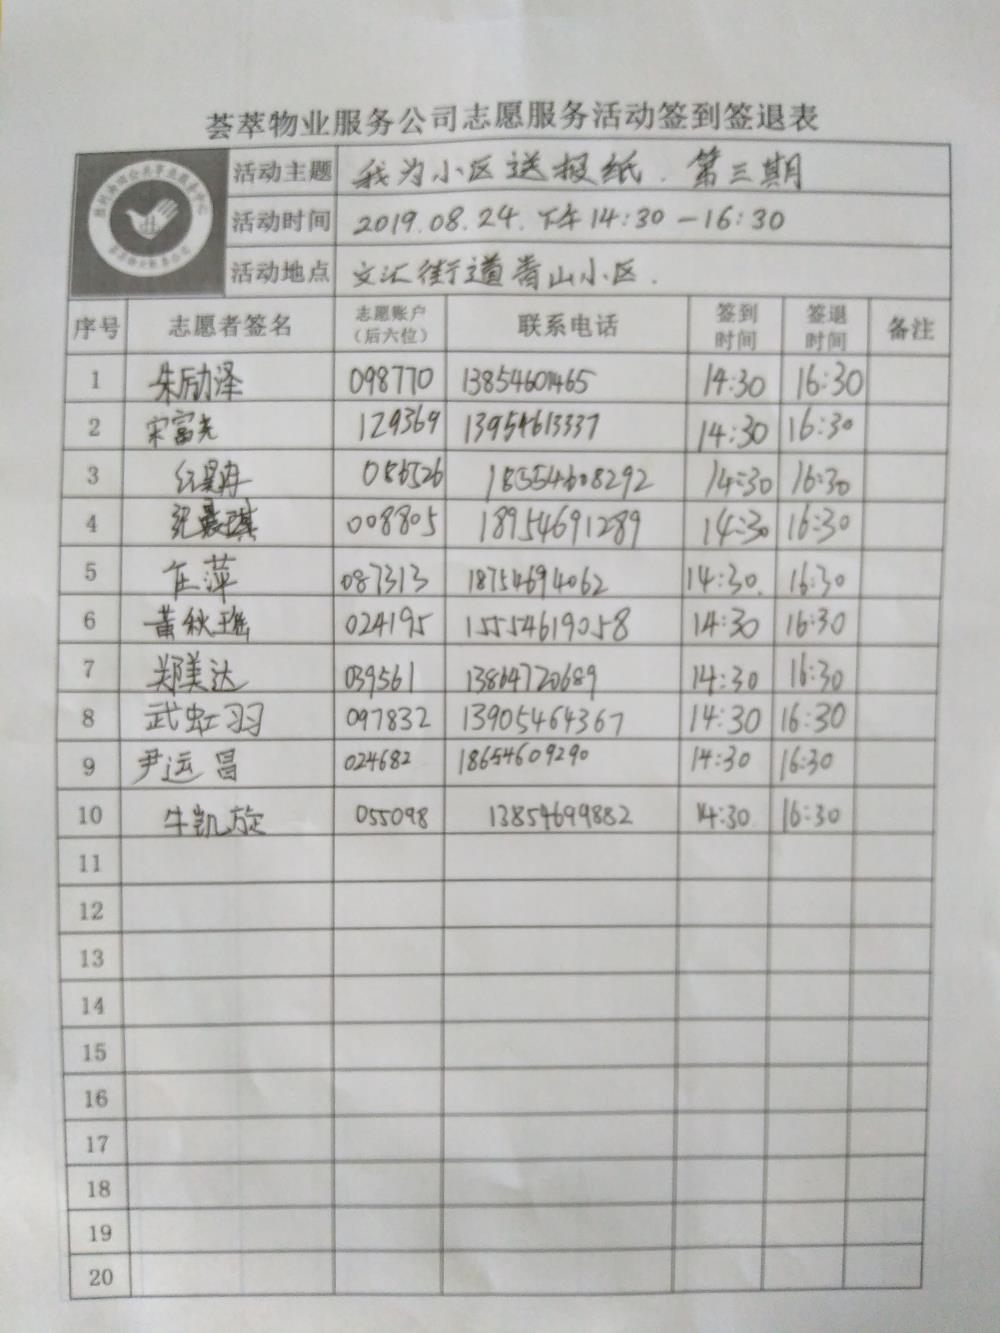 荟萃物业服务公司志愿服务活动签到签退表
活动主题 我为小区送报纸.第三期
活动时间 2019.08.24.下午14:30-16:30
活动地点 文汇街道青山小区.
序号 志愿者签名 志愿账户(后六位) 联系电话 签到时间 签退时间 备注
1 朱励泽 098770 13854601465 14:30 16:30
2 宋富光 129369 13954613337 14:30 16:30
3 086526 18554608292 14:30 16:30
4 008805 18954691289 14:30 16:30
5 任萍 087313 18754694062 14:30. 16:30
6 黄秋瑶 024195 15554619058 14:30 16:30
7 郑美达 039561 13864720689 14:30 16:30
8 武虹羽 097832 13905464367 14:30 16:30
9 尹运昌 024682 18654609290 14:30 16:30
10 牛凯旋 055098 13854699882 14:30 16:30
11
12
13
14
15
16
17
18
19
20